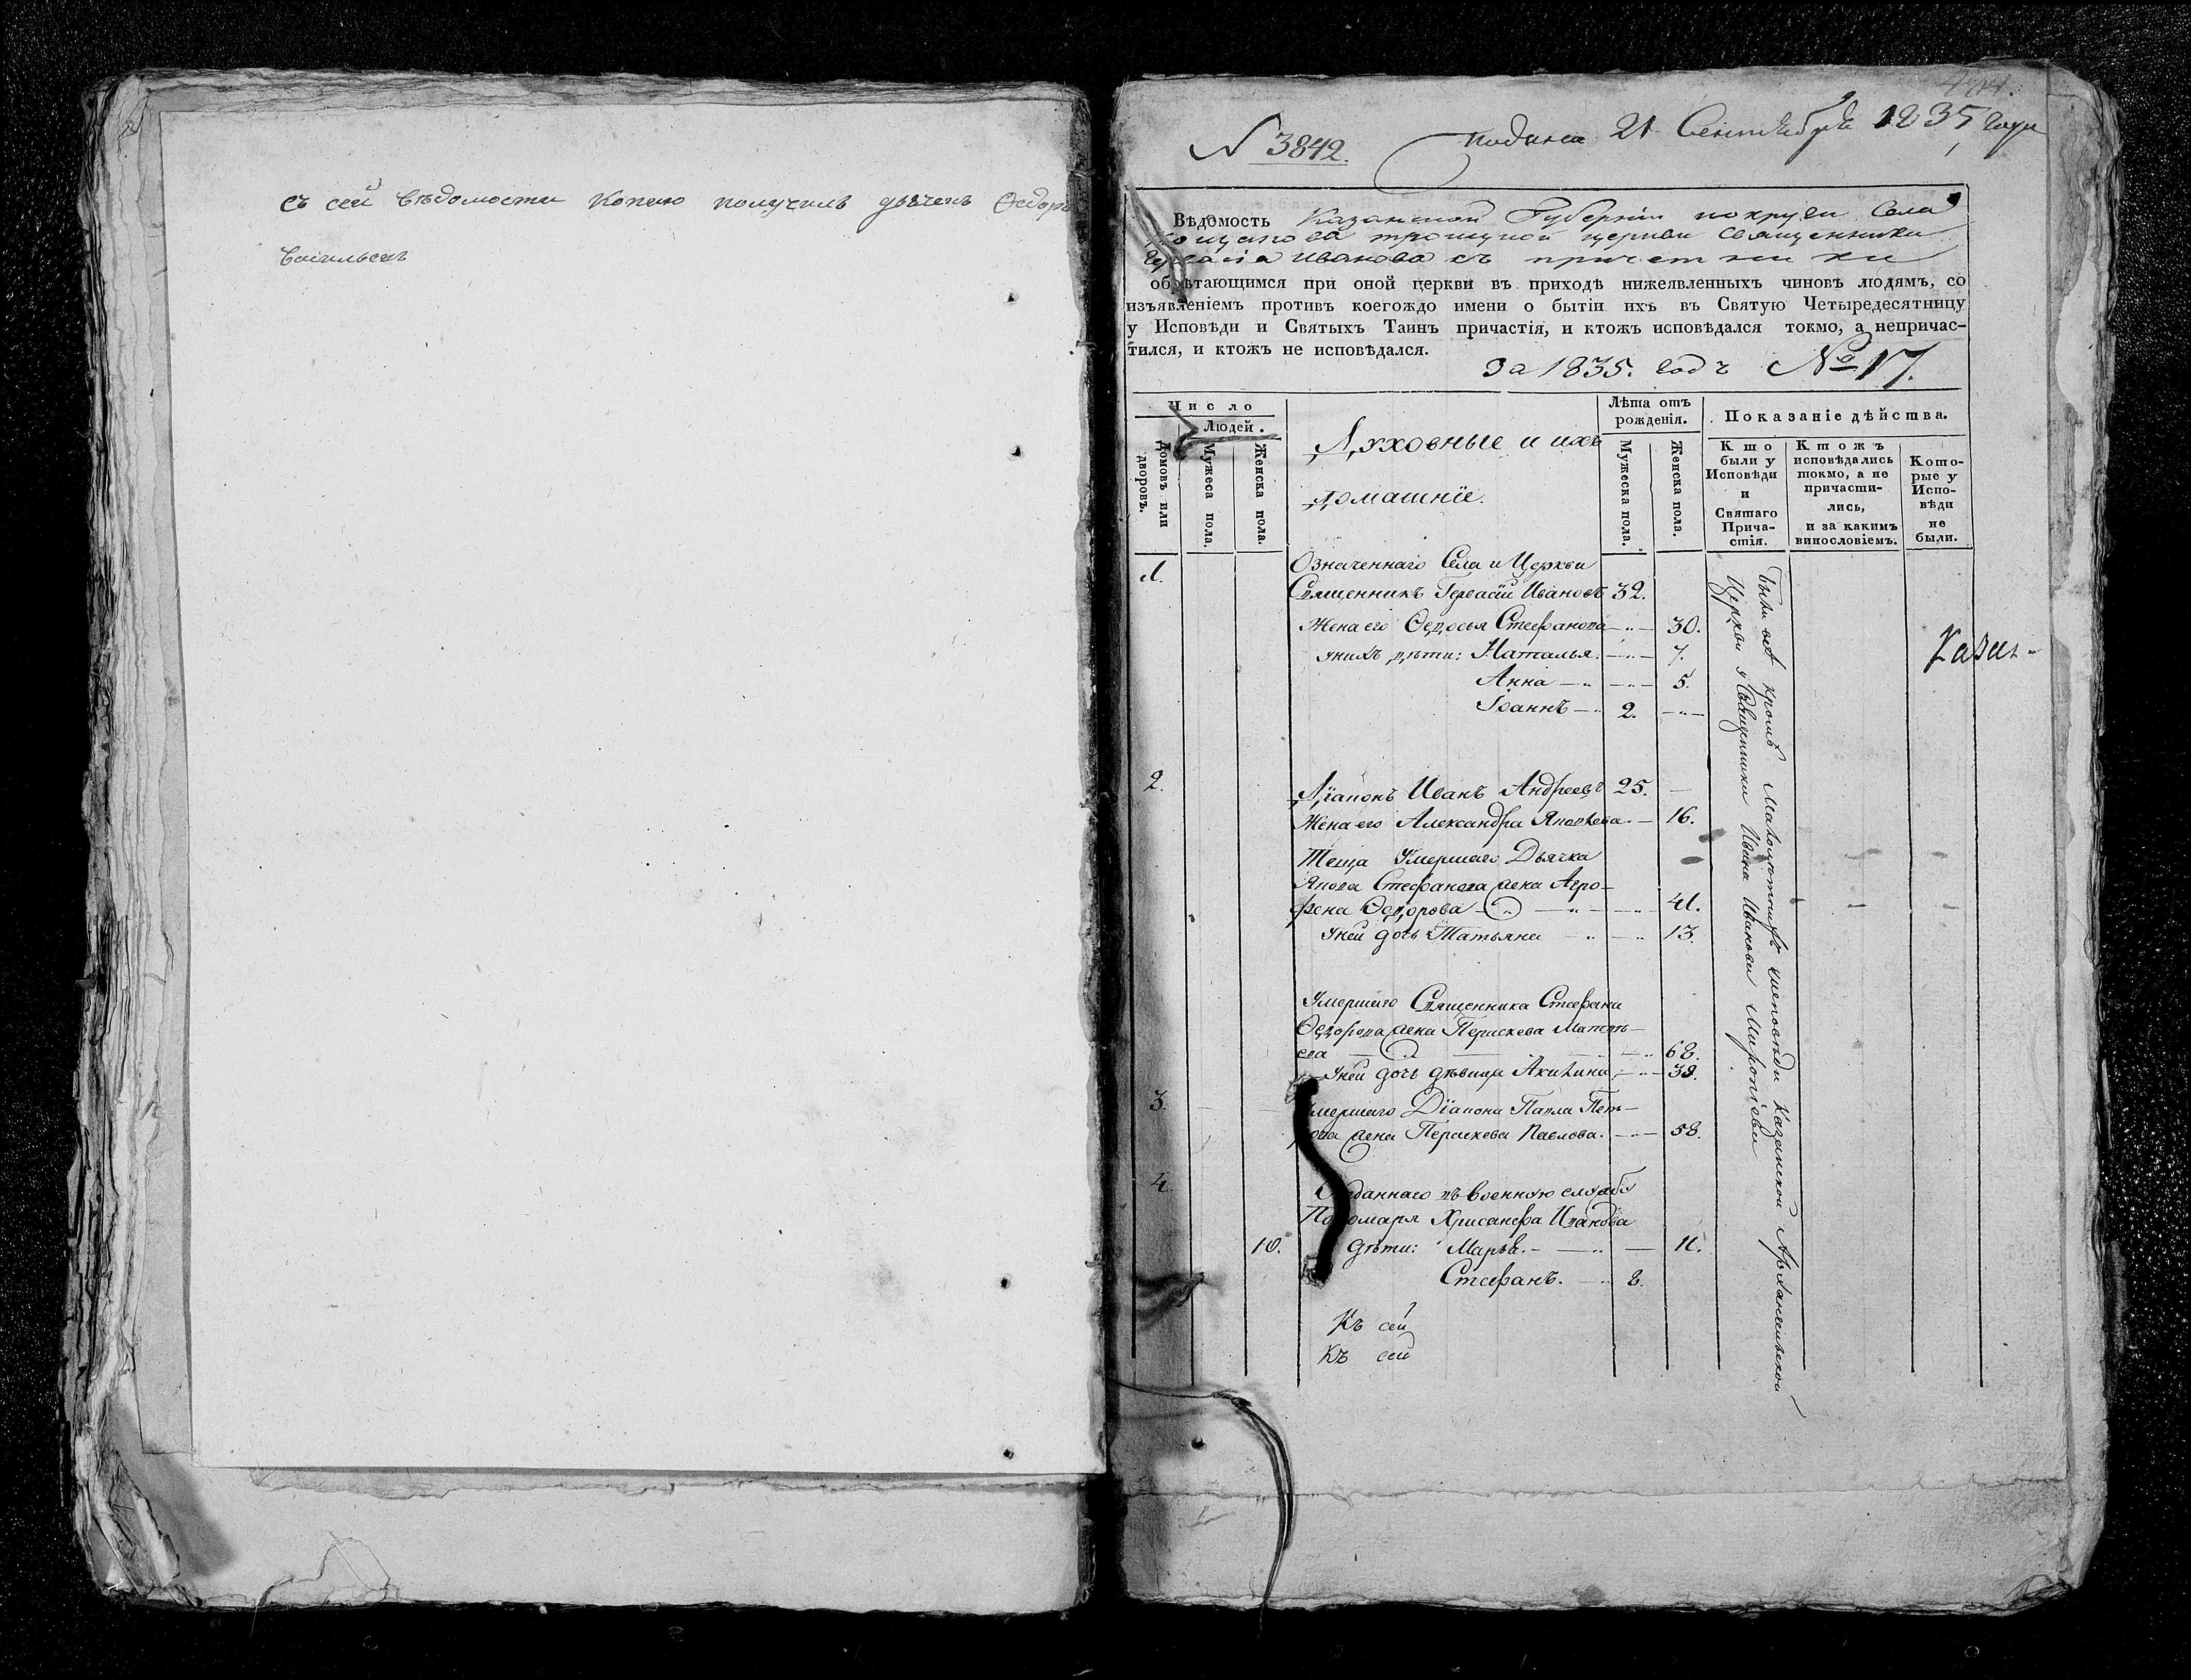 съ сей вѣдомости копию получилъ дьячекъ Ѳедоръ
Васильевъ
N 3842.
подана 21 Сентября 1835 года
Вѣдомость Казанской Губерніи округи Села
троицкой церкви священника
Гервасія Иванова съ причетники
обрѣтающимся при оной церкви въ приходѣ нижеявленныхъ чиновъ людямъ, со
изъявленіемъ противъ коегождо имени о бытіи ихъ въ Святую Четыредесятницу
у Исповѣди и Святыхъ Таинъ причастія, и ктожъ исповѣдался токмо, а непричас-
тился, и ктожъ не исповѣдался.
За 1835. годъ № 17.
Число
Людей.
Домовъ или дворовъ.
Мужеса пола.
Женска пола.
Духовные и ихъ
домашніе.
Лѣта отъ рожденія.
Мужеска пола.
Женска пола.
Показаніе дѣйства.
Кто были у Исповѣди и Святаго Прича-стія.
Ктожъ исповѣдались токмо, а не причасти-лись, и за какимъ винословіемъ.
Кото-рые у Испо-вѣди не были.
Означеннаго Села и Церкви
1. Священникъ Гервасій Ивановъ 32.
Жена его Ѳедосья Стефанова 30.
у нихъ дѣти: Наталья 7.
Анна 5.
Іоаннъ 2.
2. Діаконъ Иванъ Андреевъ 25.
Жена его Александра Яковлева 16.
Теща умершаго Дьячка
Якова Стефанова жена Агро-
фена Ѳедорова 41.
у ней дочь Татьяна 13.
Умершаго Священника Стефана
Ѳедорова жена Параскева Матвѣ-
ева 68.
у ней дочь дѣвица Акилина 38.
3. умершаго Діакона Павла Пет-
рова жена Параскева Павлова 58.
4. Отданнаго въ военную службу
Пономаря Хрисанфа Иванова
10. дѣти: Марья 11.
Стефанъ. 8.
Къ сей
Къ сей
Были всѣ кромѣ Малолѣтнихъ у исповѣди Казанской Архангельской
Церкви у Священника Ивана Иванова
Казан-